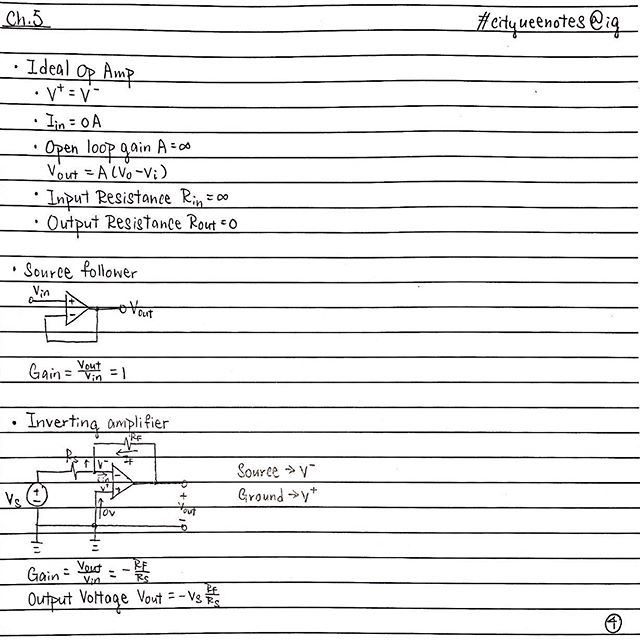 Ch.5
#cityueenotes@ig
• Ideal Op Amp
• V⁺ = V⁻
• Iin = 0A
• Open loop gain A = ∞
Vout = A(Vo - Vi)
• Input Resistance Rin = ∞
• Output Resistance Rout = 0
• Source follower
Vin
+
-
Vout
Gain = Vout/Vin = 1
• Inverting amplifier
RF
IF
Rs
V⁻
-
+
Vs
+
-
0V
+
Vout
-
Source → V⁻
Ground → V⁺
Gain = Vout/Vin = -RF/RS
Output Voltage Vout = -Vs RF/RS
4